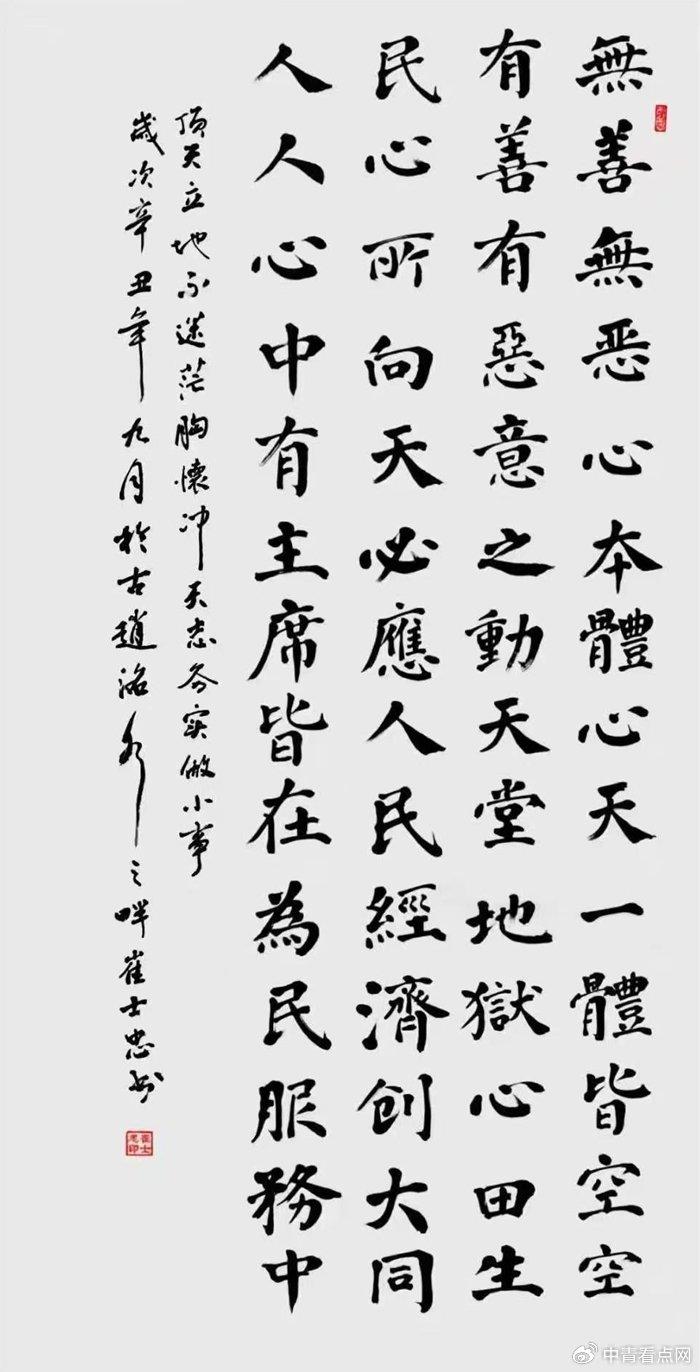 無善無恶心本體心天一體皆空空
有善有惡意之動天堂地獄心田生
民心所向天必應人民經濟創大同
人人心中有主席皆在為民服務中
顶天立地不迷茫胸懷冲天志务实做小事
歲次辛丑年九月於古趙洺水之畔崔士忠书
崔士忠印
中青看点网